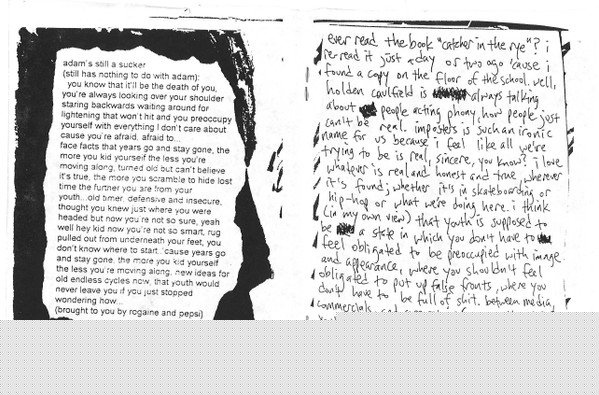 adam's still a sucker
(still has nothing to do with adam):
you know that it'll be the death of you,
you're always looking over your shoulder
staring backwards waiting around for
lightening that won't hit and you preoccupy
yourself with everything I don't care about
cause you're afraid, afraid to...
face facts that years go and stay gone, the
more you kid yourself the less you're
moving along, turned old but can't believe
it's true, the more you scramble to hide lost
time the further you are from your
youth...old timer, defensive and insecure,
thought you knew just where you were
headed but now you're not so sure, yeah
well hey kid now you're not so smart, rug
pulled out from underneath your feet, you
don't know where to start..'cause years go
and stay gone, the more you kid yourself
the less you're moving along, new ideas for
old endless cycles now, that youth would
never leave you if you just stopped
wondering how...
(brought to you by rogaine and pepsi)
ever read the book "catcher in the rye"? i
re-read it just a day or two ago 'cause i
found a copy on the floor of the school. well,
holden caulfield is always talking
about people acting phony, how people just
can't be real. imposters is such an ironic
name for us because i feel like all we're
trying to be is real, sincere, you know? i love
whatever is real and honest and true, wherever
it's found; whether it's in skateboarding or
hip-hop or what we're doing here. i think
(in my own view) that youth is supposed to
be a state in which you don't have to
feel obligated to be preoccupied with image
and appearance, where you shouldn't feel
obligated to put up false fronts, where you
don't have to be full of shit. between media,
commercials, and